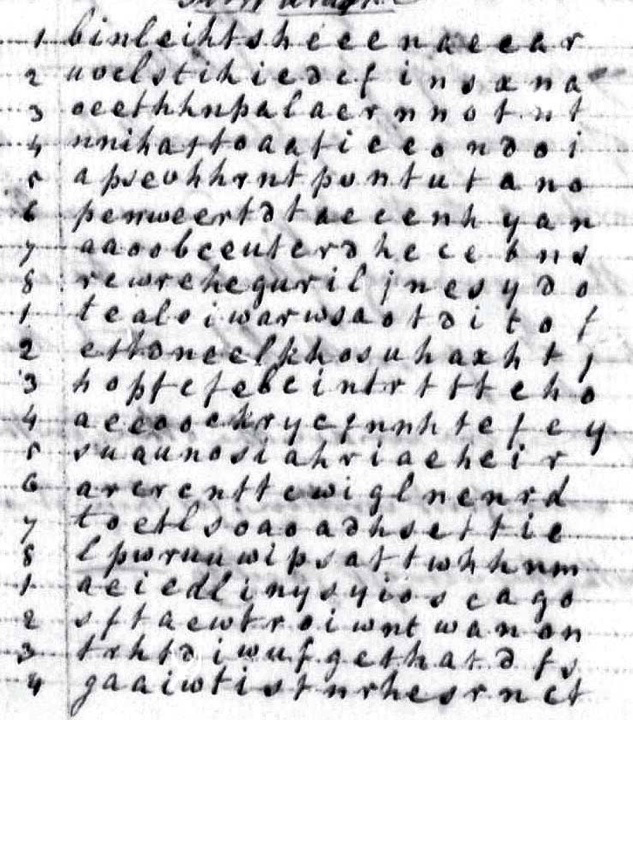 1 binleihtsheeenaeear
2 uoelstihiedefinsana
3 oeethhnpalaernnotnt
4 nnihattoaaticeondoi
5 apseohhrntpontutano
6 penweertdtaeeenhyan
7 aaoobeeuterdheceens
8 rewreheguriljnesydo
1 tealoiwarwsaotditof
2 ettoneelkhosuhaxhti
3 hopfefebeintrtttcho
4 aeeooehrycfnnhtefey
5 suaunosiahriaeheir
6 arerentt wiglnenrd
7 toetlsoaoadhsettie
8 lpwruuwipsattwhhnm
1 aeiedlinysyioscago
2 sftaewtroiwntwanon
3 trhtdiwufgethatdfs
4 gaaiwtistnrhesrnct